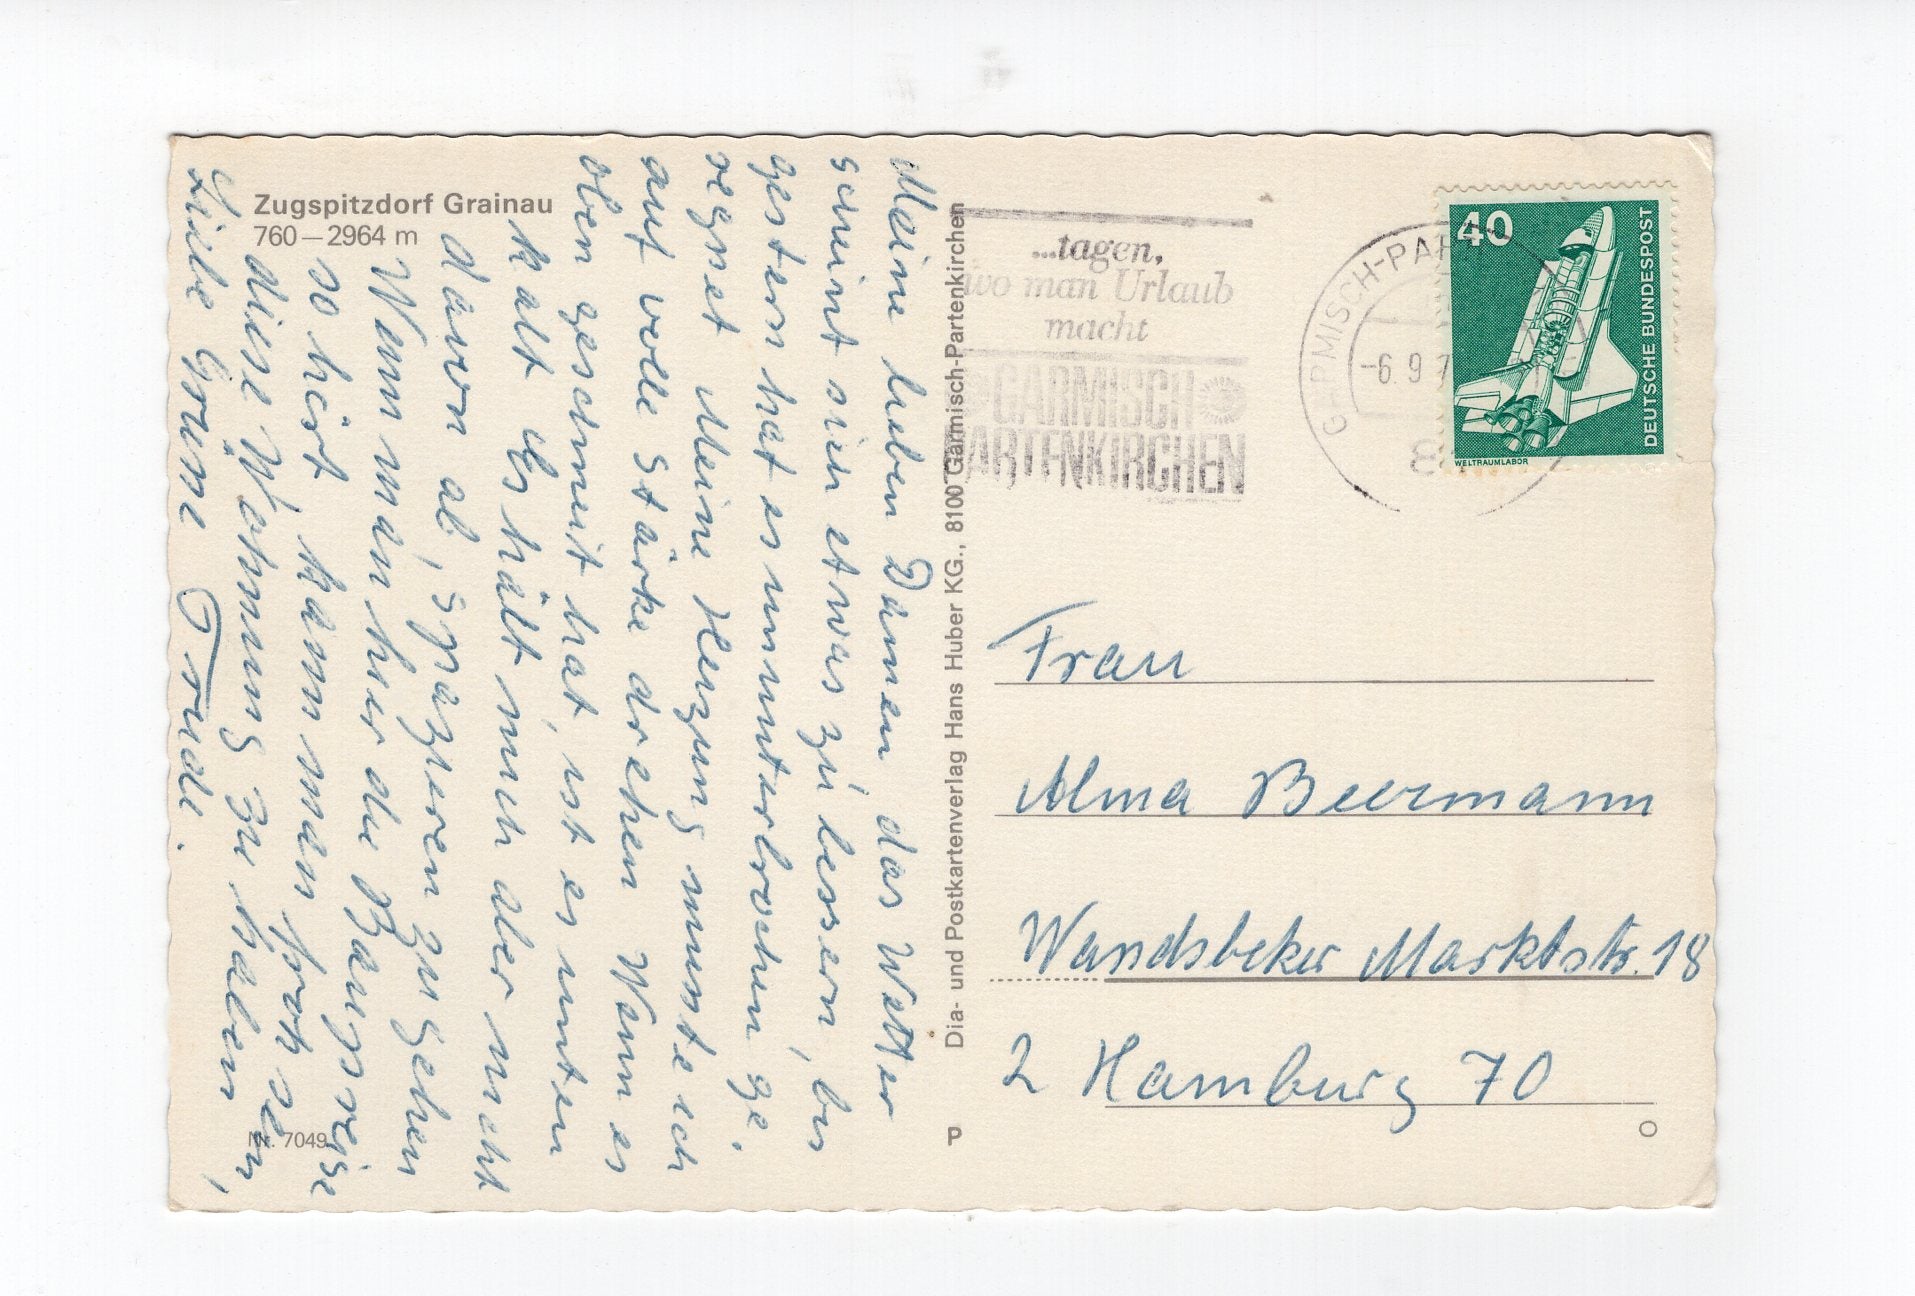 Zugspitzdorf Grainau
760 – 2964 m
Meine lieben Damen, das Wetter
scheint sich etwas zu bessern, bis
gestern hat es ununterbrochen ge-
regnet Meine Heizung musste ich
auf volle Stärke drehen Wenn es
oben geschneit hat, ist es unten
kalt Es hält mich aber nicht
davon ab, spazieren zu gehen
Wenn man hier die
so hört kann man froh sein,
diese Wohnung zu haben
Liebe Grüße Trude.
Nr. 7049
Dia- und Postkartenverlag Hans Huber KG., 8100 Garmisch-Partenkirchen
P
...tagen,
wo man Urlaub
macht
GARMISCH
PARTENKIRCHEN
-6. 9. 7
40
DEUTSCHE BUNDESPOST
WELTRAUMLABOR
Frau
Alma Beermann
Wandsbeker Marktstr. 18
2 Hamburg 70